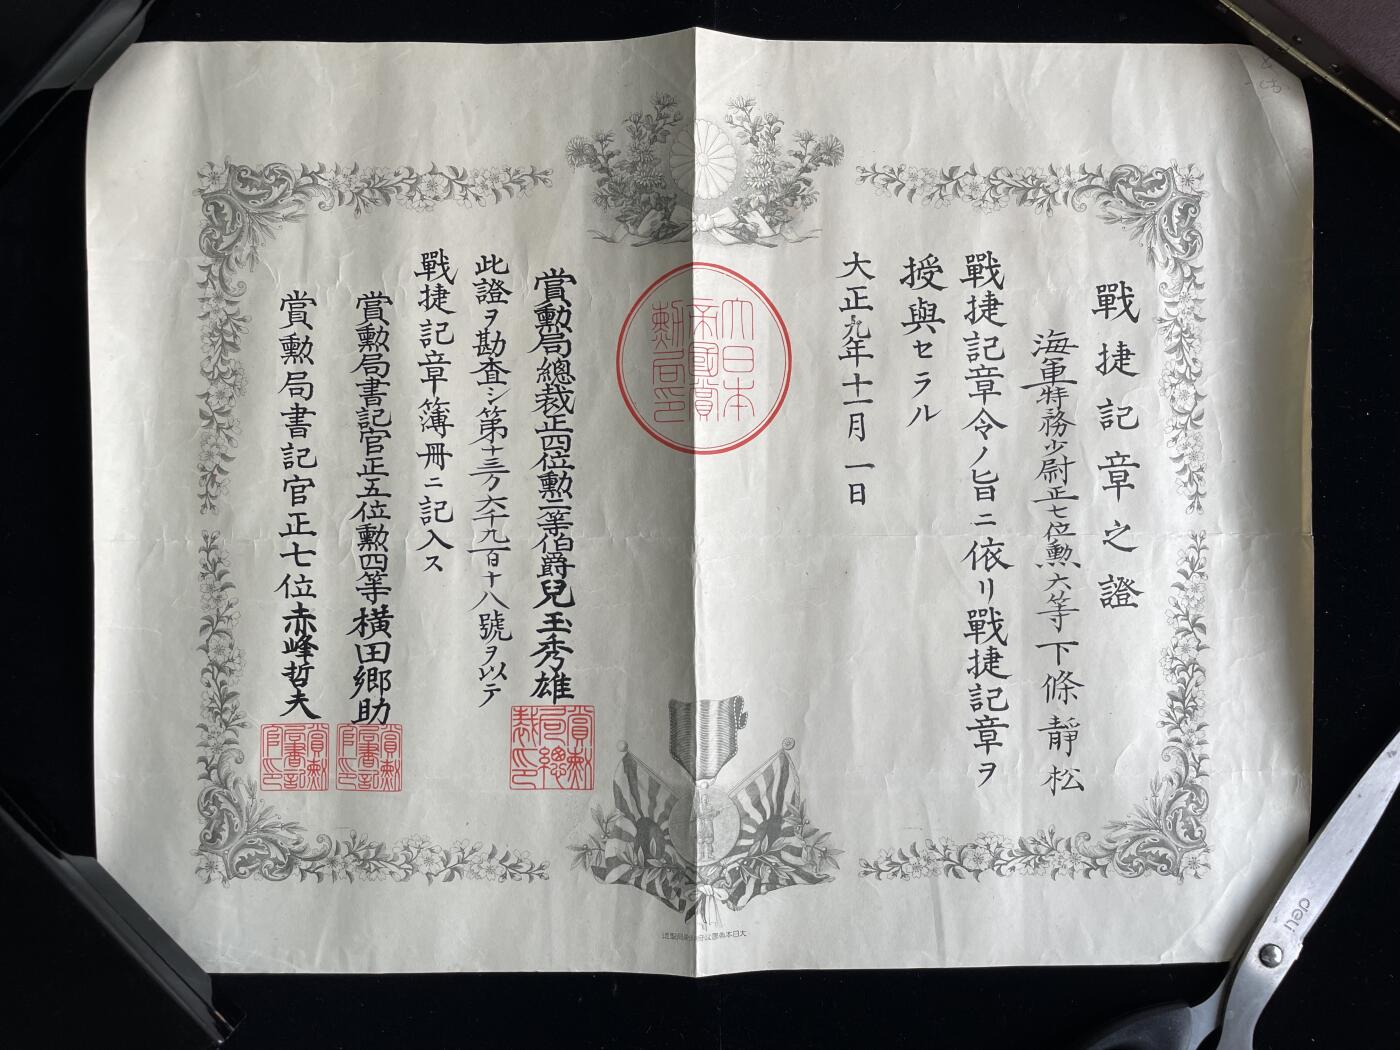 戰捷記章之證
海軍特務少尉正七位勲六等下條靜松
戰捷記章令ノ旨ニ依リ戰捷記章ヲ
授與セラル
大正九年十一月一日
大日本
帝國賞
勲局印
賞勲局總裁正四位勲二等伯爵兒玉秀雄
賞勲
局總
裁印
此證ヲ勘査シ第十三万六千九百十八號ヲ以テ
戰捷記章簿冊ニ記入ス
賞勲局書記官正五位勲四等横田郷助
賞勲
局書記
官印
賞勲局書記官正七位赤峰哲夫
賞勲
局書記
官印
deli